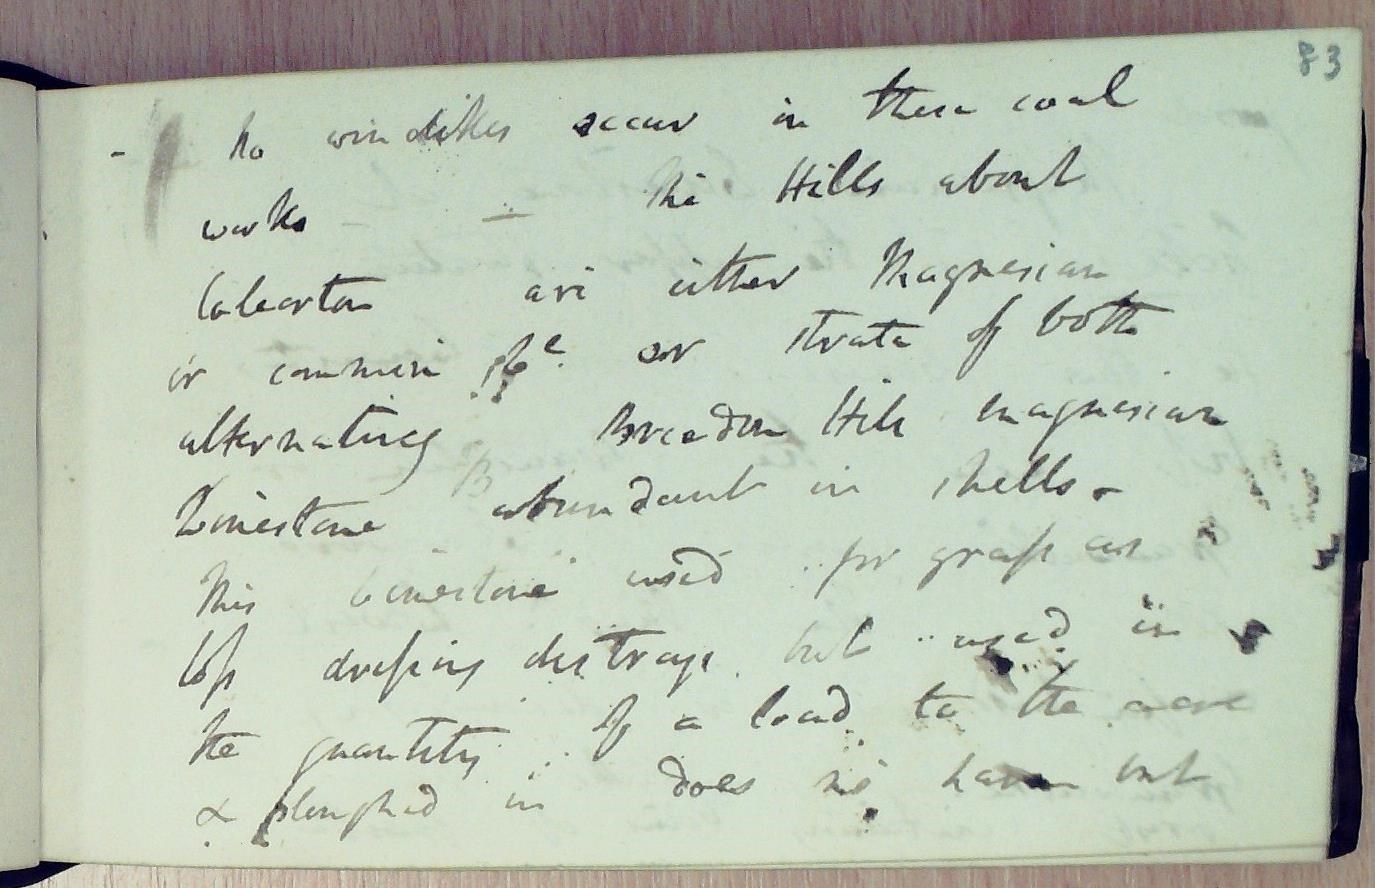 83
- No win dikes occur in these coal
works — The Hills about
Coleorton are either Magnesian
or common or strata of both
alternating Breedon Hill magnesian
Limestone abundant in shells -
This limestone used for grass as
top dressing destroys but used in
the quantity of a load to the acre
& ploughed in does no harm but